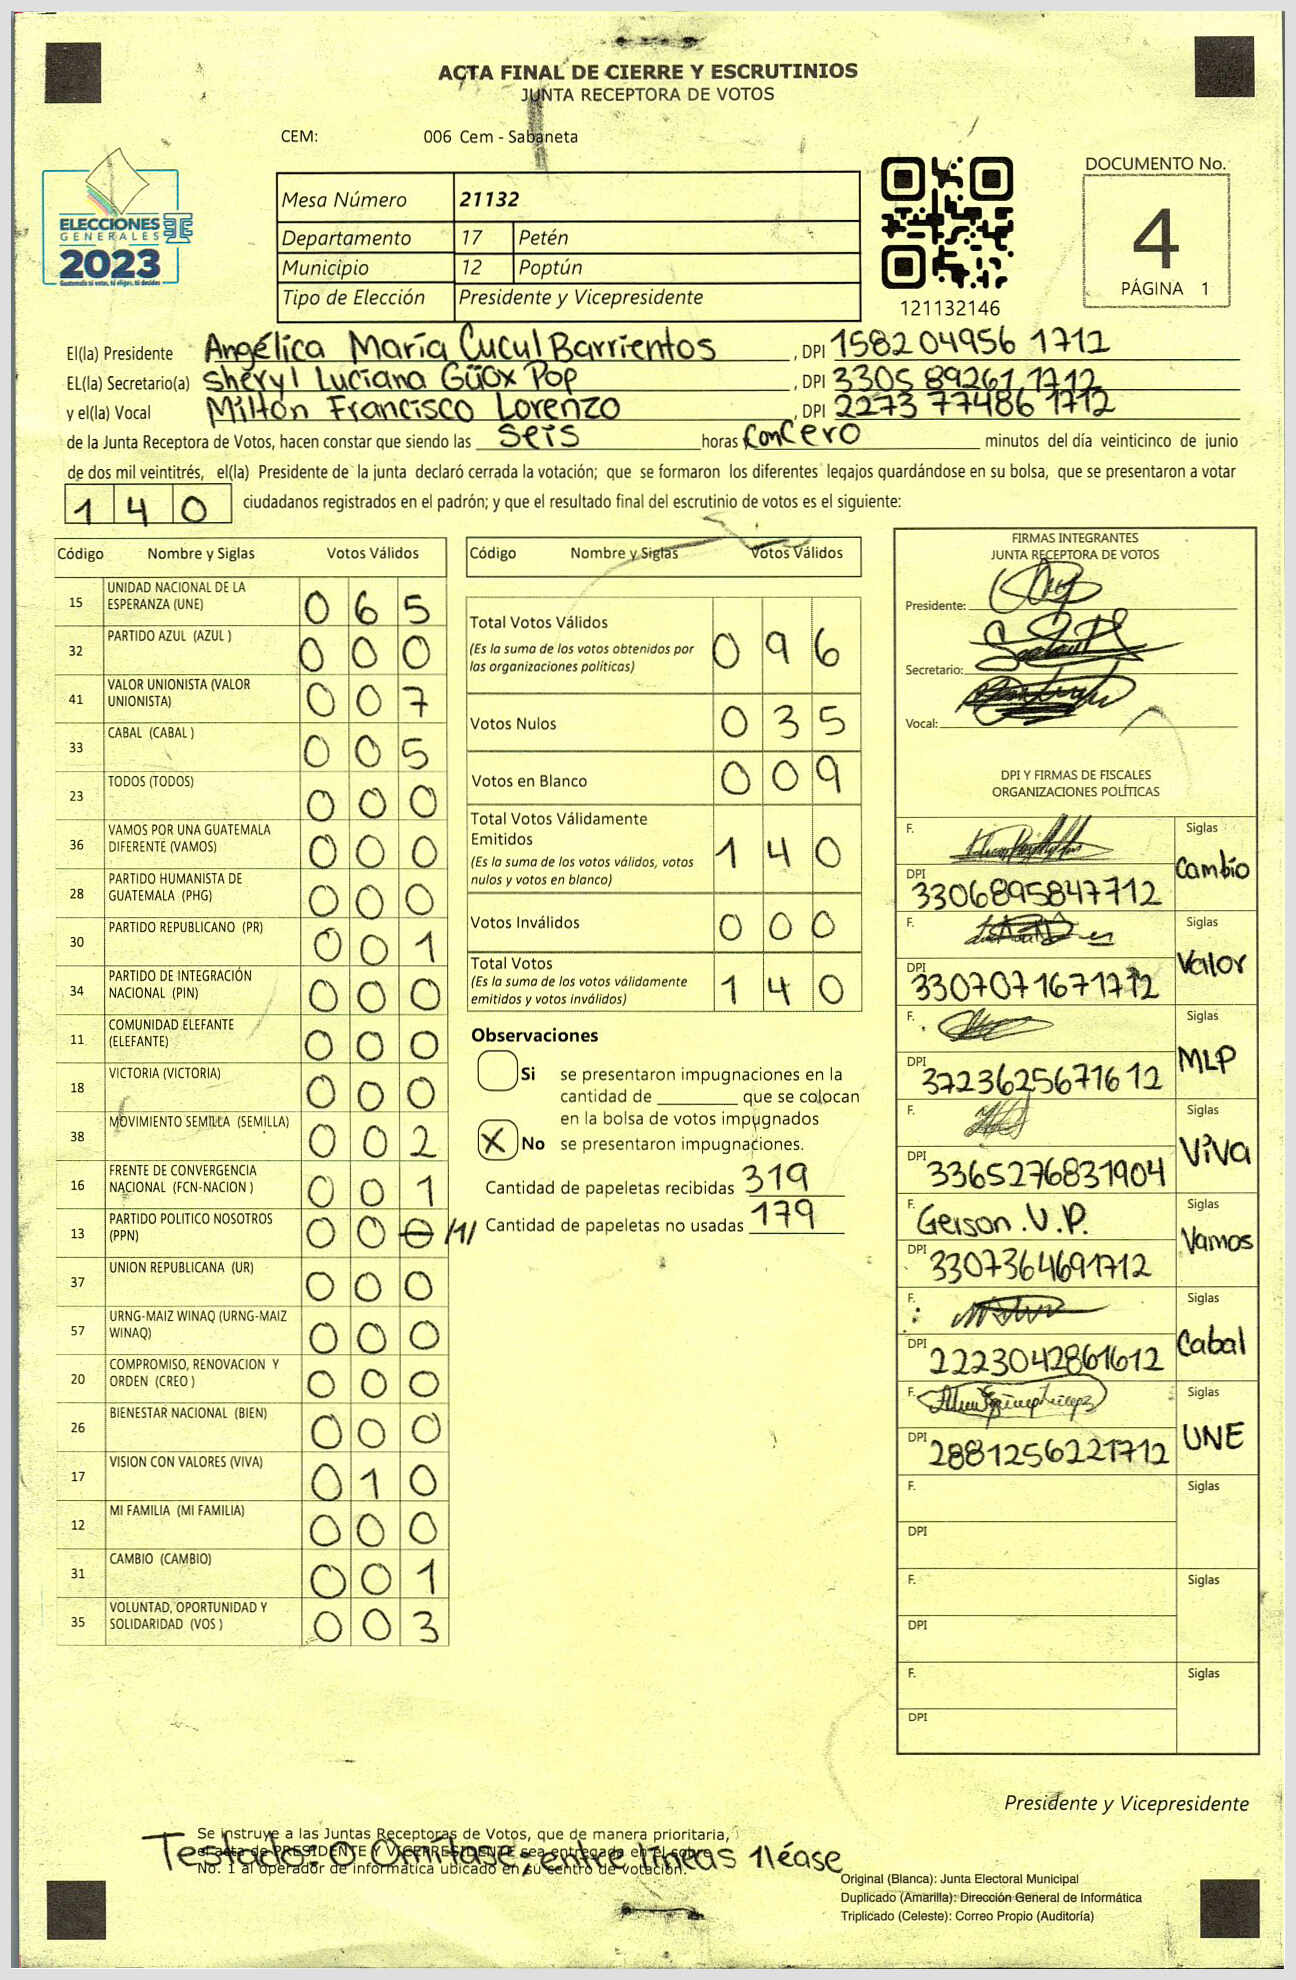 ACTA FINAL DE CIERRE Y ESCRUTINIOS
JUNTA RECEPTORA DE VOTOS
CEM: 006 Cem - Sabaneta
ELECCIONES
GENERALES
2023
Guatemala tú votas, tú eliges, tú decides
Mesa Número 21132
Departamento 17 Petén
Municipio 12 Poptún
Tipo de Elección Presidente y Vicepresidente
121132146
DOCUMENTO No.
4
PÁGINA 1
El(la) Presidente Angélica María Cucul Barrientos , DPI 1582 04956 1712
EL(la) Secretario(a) Sheryl Luciana Güox Pop , DPI 3305 89261 1712
y el(la) Vocal Milton Francisco Lorenzo , DPI 2273 77486 1712
de la Junta Receptora de Votos, hacen constar que siendo las seis horas con cero minutos del día veinticinco de junio
de dos mil veintitrés, el(la) Presidente de la junta declaró cerrada la votación; que se formaron los diferentes legajos guardándose en su bolsa, que se presentaron a votar
1 4 0 ciudadanos registrados en el padrón; y que el resultado final del escrutinio de votos es el siguiente:
Código Nombre y Siglas Votos Válidos
15 UNIDAD NACIONAL DE LA ESPERANZA (UNE) 0 6 5
32 PARTIDO AZUL (AZUL ) 0 0 0
41 VALOR UNIONISTA (VALOR UNIONISTA) 0 0 7
33 CABAL (CABAL ) 0 0 5
23 TODOS (TODOS) 0 0 0
36 VAMOS POR UNA GUATEMALA DIFERENTE (VAMOS) 0 0 0
28 PARTIDO HUMANISTA DE GUATEMALA (PHG) 0 0 0
30 PARTIDO REPUBLICANO (PR) 0 0 1
34 PARTIDO DE INTEGRACIÓN NACIONAL (PIN) 0 0 0
11 COMUNIDAD ELEFANTE (ELEFANTE) 0 0 0
18 VICTORIA (VICTORIA) 0 0 0
38 MOVIMIENTO SEMILLA (SEMILLA) 0 0 2
16 FRENTE DE CONVERGENCIA NACIONAL (FCN-NACION ) 0 0 1
13 PARTIDO POLITICO NOSOTROS (PPN) 0 0 0 /1/
37 UNION REPUBLICANA (UR) 0 0 0
57 URNG-MAIZ WINAQ (URNG-MAIZ WINAQ) 0 0 0
20 COMPROMISO, RENOVACION Y ORDEN (CREO ) 0 0 0
26 BIENESTAR NACIONAL (BIEN) 0 0 0
17 VISION CON VALORES (VIVA) 0 1 0
12 MI FAMILIA (MI FAMILIA) 0 0 0
31 CAMBIO (CAMBIO) 0 0 1
35 VOLUNTAD, OPORTUNIDAD Y SOLIDARIDAD (VOS ) 0 0 3
Código Nombre y Siglas Votos Válidos
Total Votos Válidos 0 9 6
(Es la suma de los votos obtenidos por
las organizaciones políticas)
Votos Nulos 0 3 5
Votos en Blanco 0 0 9
Total Votos Válidamente
Emitidos 1 4 0
(Es la suma de los votos válidos, votos
nulos y votos en blanco)
Votos Inválidos 0 0 0
Total Votos 1 4 0
(Es la suma de los votos válidamente
emitidos y votos inválidos)
Observaciones
Si se presentaron impugnaciones en la
cantidad de ________ que se colocan
en la bolsa de votos impugnados
X No se presentaron impugnaciones.
Cantidad de papeletas recibidas 319
Cantidad de papeletas no usadas 179
FIRMAS INTEGRANTES
JUNTA RECEPTORA DE VOTOS
Presidente:
Secretario:
Vocal:
DPI Y FIRMAS DE FISCALES
ORGANIZACIONES POLÍTICAS
F. Siglas Cambio
DPI 3306895847712
F. Siglas Valor
DPI 3307071671712
F. Siglas MLP
DPI 3723625671612
F. Siglas ViVA
DPI 3365276831904
F. Geison .V.P. Siglas Vamos
DPI 3307364691712
F. Siglas Cabal
DPI 2223042861612
F. Siglas UNE
DPI 2881256221712
F. Siglas
DPI
F. Siglas
DPI
F. Siglas
DPI
Presidente y Vicepresidente
Se instruye a las Juntas Receptoras de Votos, que de manera prioritaria,
el acta de PRESIDENTE Y VICEPRESIDENTE sea entregada en el sobre
No. 1 al operador de informática ubicado en su centro de votación.
Testado: 0 Omítase; entre líneas 1 léase
Original (Blanca): Junta Electoral Municipal
Duplicado (Amarilla): Dirección General de Informática
Triplicado (Celeste): Correo Propio (Auditoría)